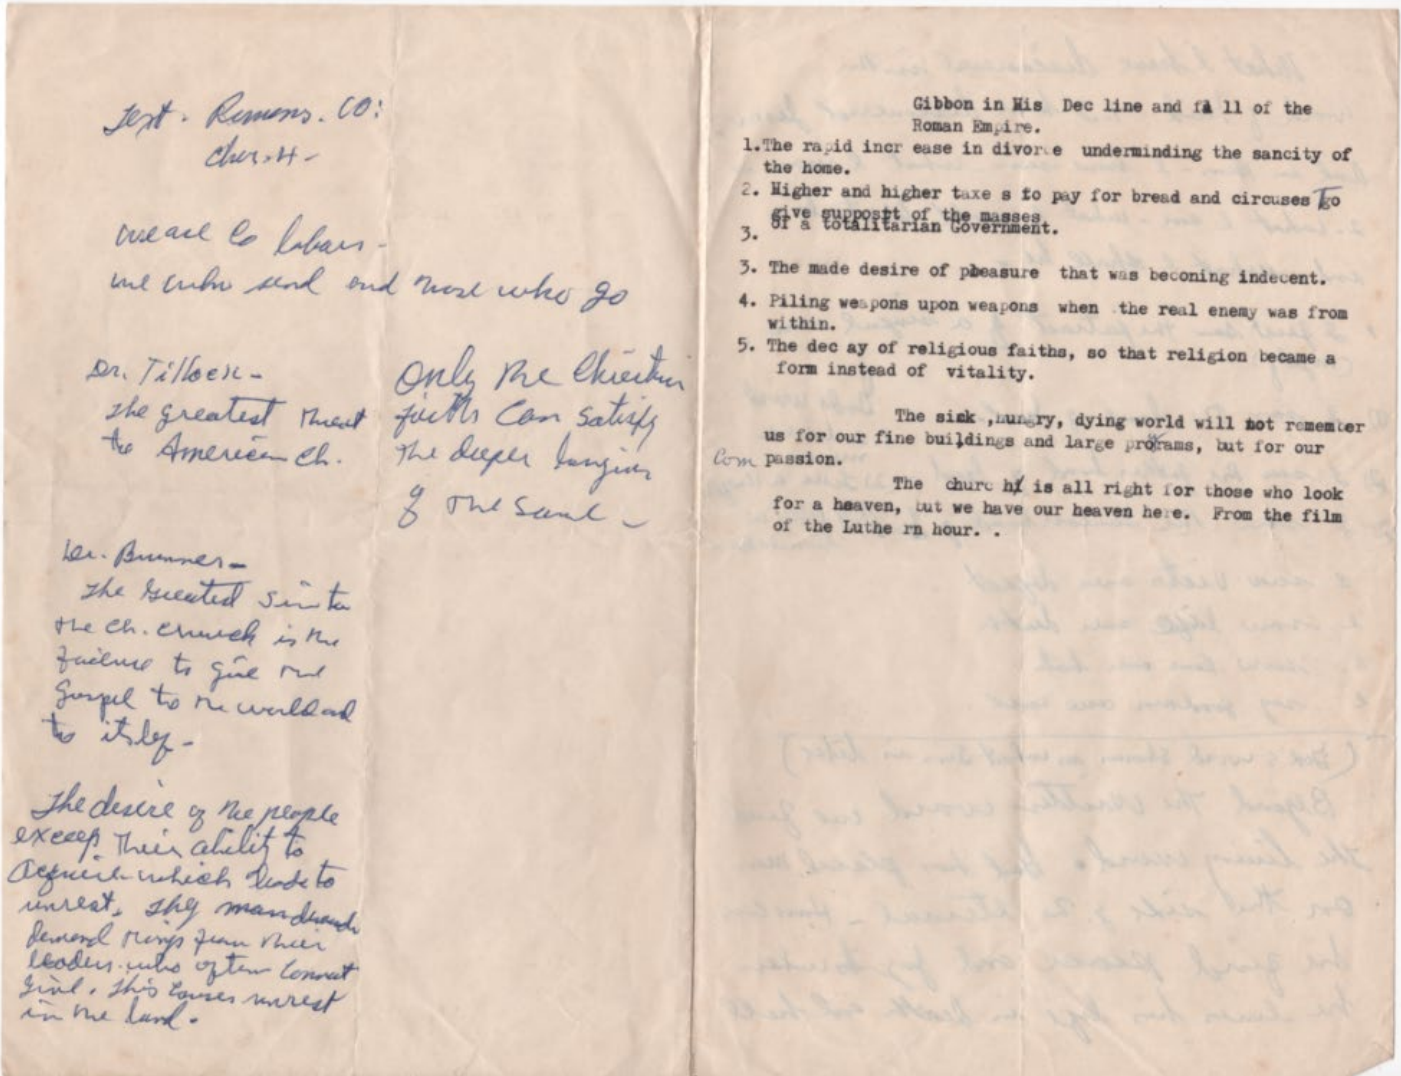 Text. Romans. 10:
Cher. 4-
We are Co labors-
we who send and those who go
Dr. Tilloch-
The greatest threat
to American Ch.
Only the Christian
faith Can satisfy
the deeper longing
of the Soul-
Dr. Brunner-
The Greatest Sin to
the Ch. Church is the
failure to give the
Gospel to the world and
to itself-
The desire of the people
exceep their ability to
acquire which leads to
unrest. They
demand things from their
leaders who often Connot
give. This Causes unrest
in the land.
Gibbon in His Dec line and fA ll of the
Roman Empire.
1.The rapid incr ease in divorce underminding the sancity of
the home.
2. Higher and higher taxe s to pay for bread and circuses To go
give suppostt of the masses
3. of a totalitarian Government.
3. The made desire of pleasure that was beconing indecent.
4. Piling weapons upon weapons when the real enemy was from
within.
5. The dec ay of religious faiths, so that religion became a
form instead of vitality.
The sick ,hungry, dying world will not remember
us for our fine buildings and large programs, but for our
Com passion.
The churc h is all right for those who look
for a heaven, but we have our heaven here. From the film
of the Luthe rn hour. .